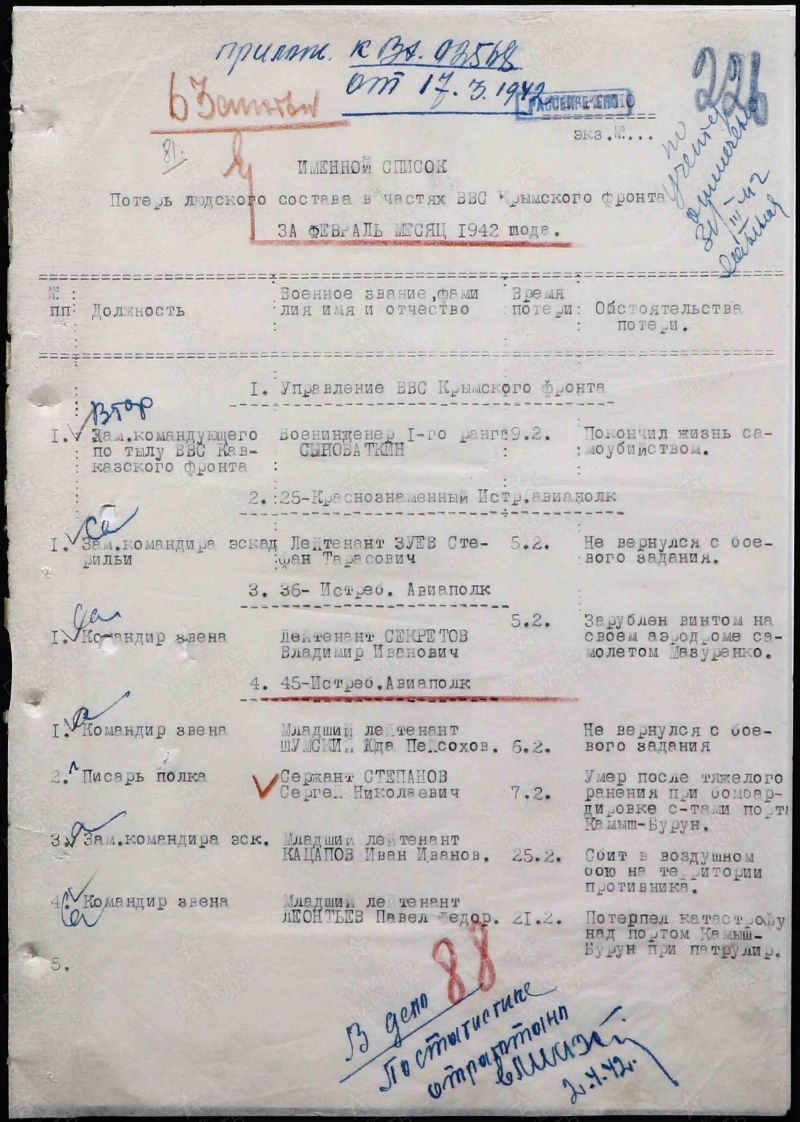 прилож. к Вх. 03568
от 17.3.1942
РАССЕКРЕЧЕНО
226
экз.№...
81.
ИМЕННОЙ СПИСОК
Потерь людского состава в частях ВВС Крымского фронта
ЗА ФЕВРАЛЬ МЕСЯЦ 1942 года.
по
учетке
31-III-42
№ пп
Должность
Военное звание, фами
лия имя и отчество
Время
потери
Обстоятельства
потери.
1. Управление ВВС Крымского фронта
Втор
1. Зам.командующего по тылу ВВС Кав-
казского фронта
Военинженер 1-го ранга
СЫНОВАТКИН
9.2.
Покончил жизнь са-
моубийством.
2. 25-Краснознаменный Истр.авиаполк
1. Зам.командира эскад
рильи
Лейтенант ЗУЕВ Сте-
фан Тарасович
5.2.
Не вернулся с бое-
вого задания.
3. 36- Истреб. Авиаполк
1. Командир звена
Лейтенант СЕКРЕТОВ
Владимир Иванович
5.2.
Зарублен винтом на
своем аэродроме са-
молетом Мазуренко.
4. 45-Истреб.Авиаполк
1. Командир звена
Младший лейтенант
ШУМСКИЙ Юда Пейсохов.
6.2.
Не вернулся с бое-
вого задания
2. Писарь полка
Сержант СТЕПАНОВ
Сергей Николаевич
7.2.
Умер после тяжелого
ранения при бомбар-
дировке с-тами порта
Камыш-Бурун.
3. Зам.командира эск.
Младший лейтенант
КАЦАПОВ Иван Иванов.
25.2.
Сбит в воздушном
бою на территории
противника.
4. Командир звена
Младший лейтенант
ЛЕОНТЬЕВ Павел Федор.
21.2.
Потерпел катастрофу
над портом Камыш-
Бурун при патрулир.
5.
88
В дело
По статистике
отработано
2.4.42.